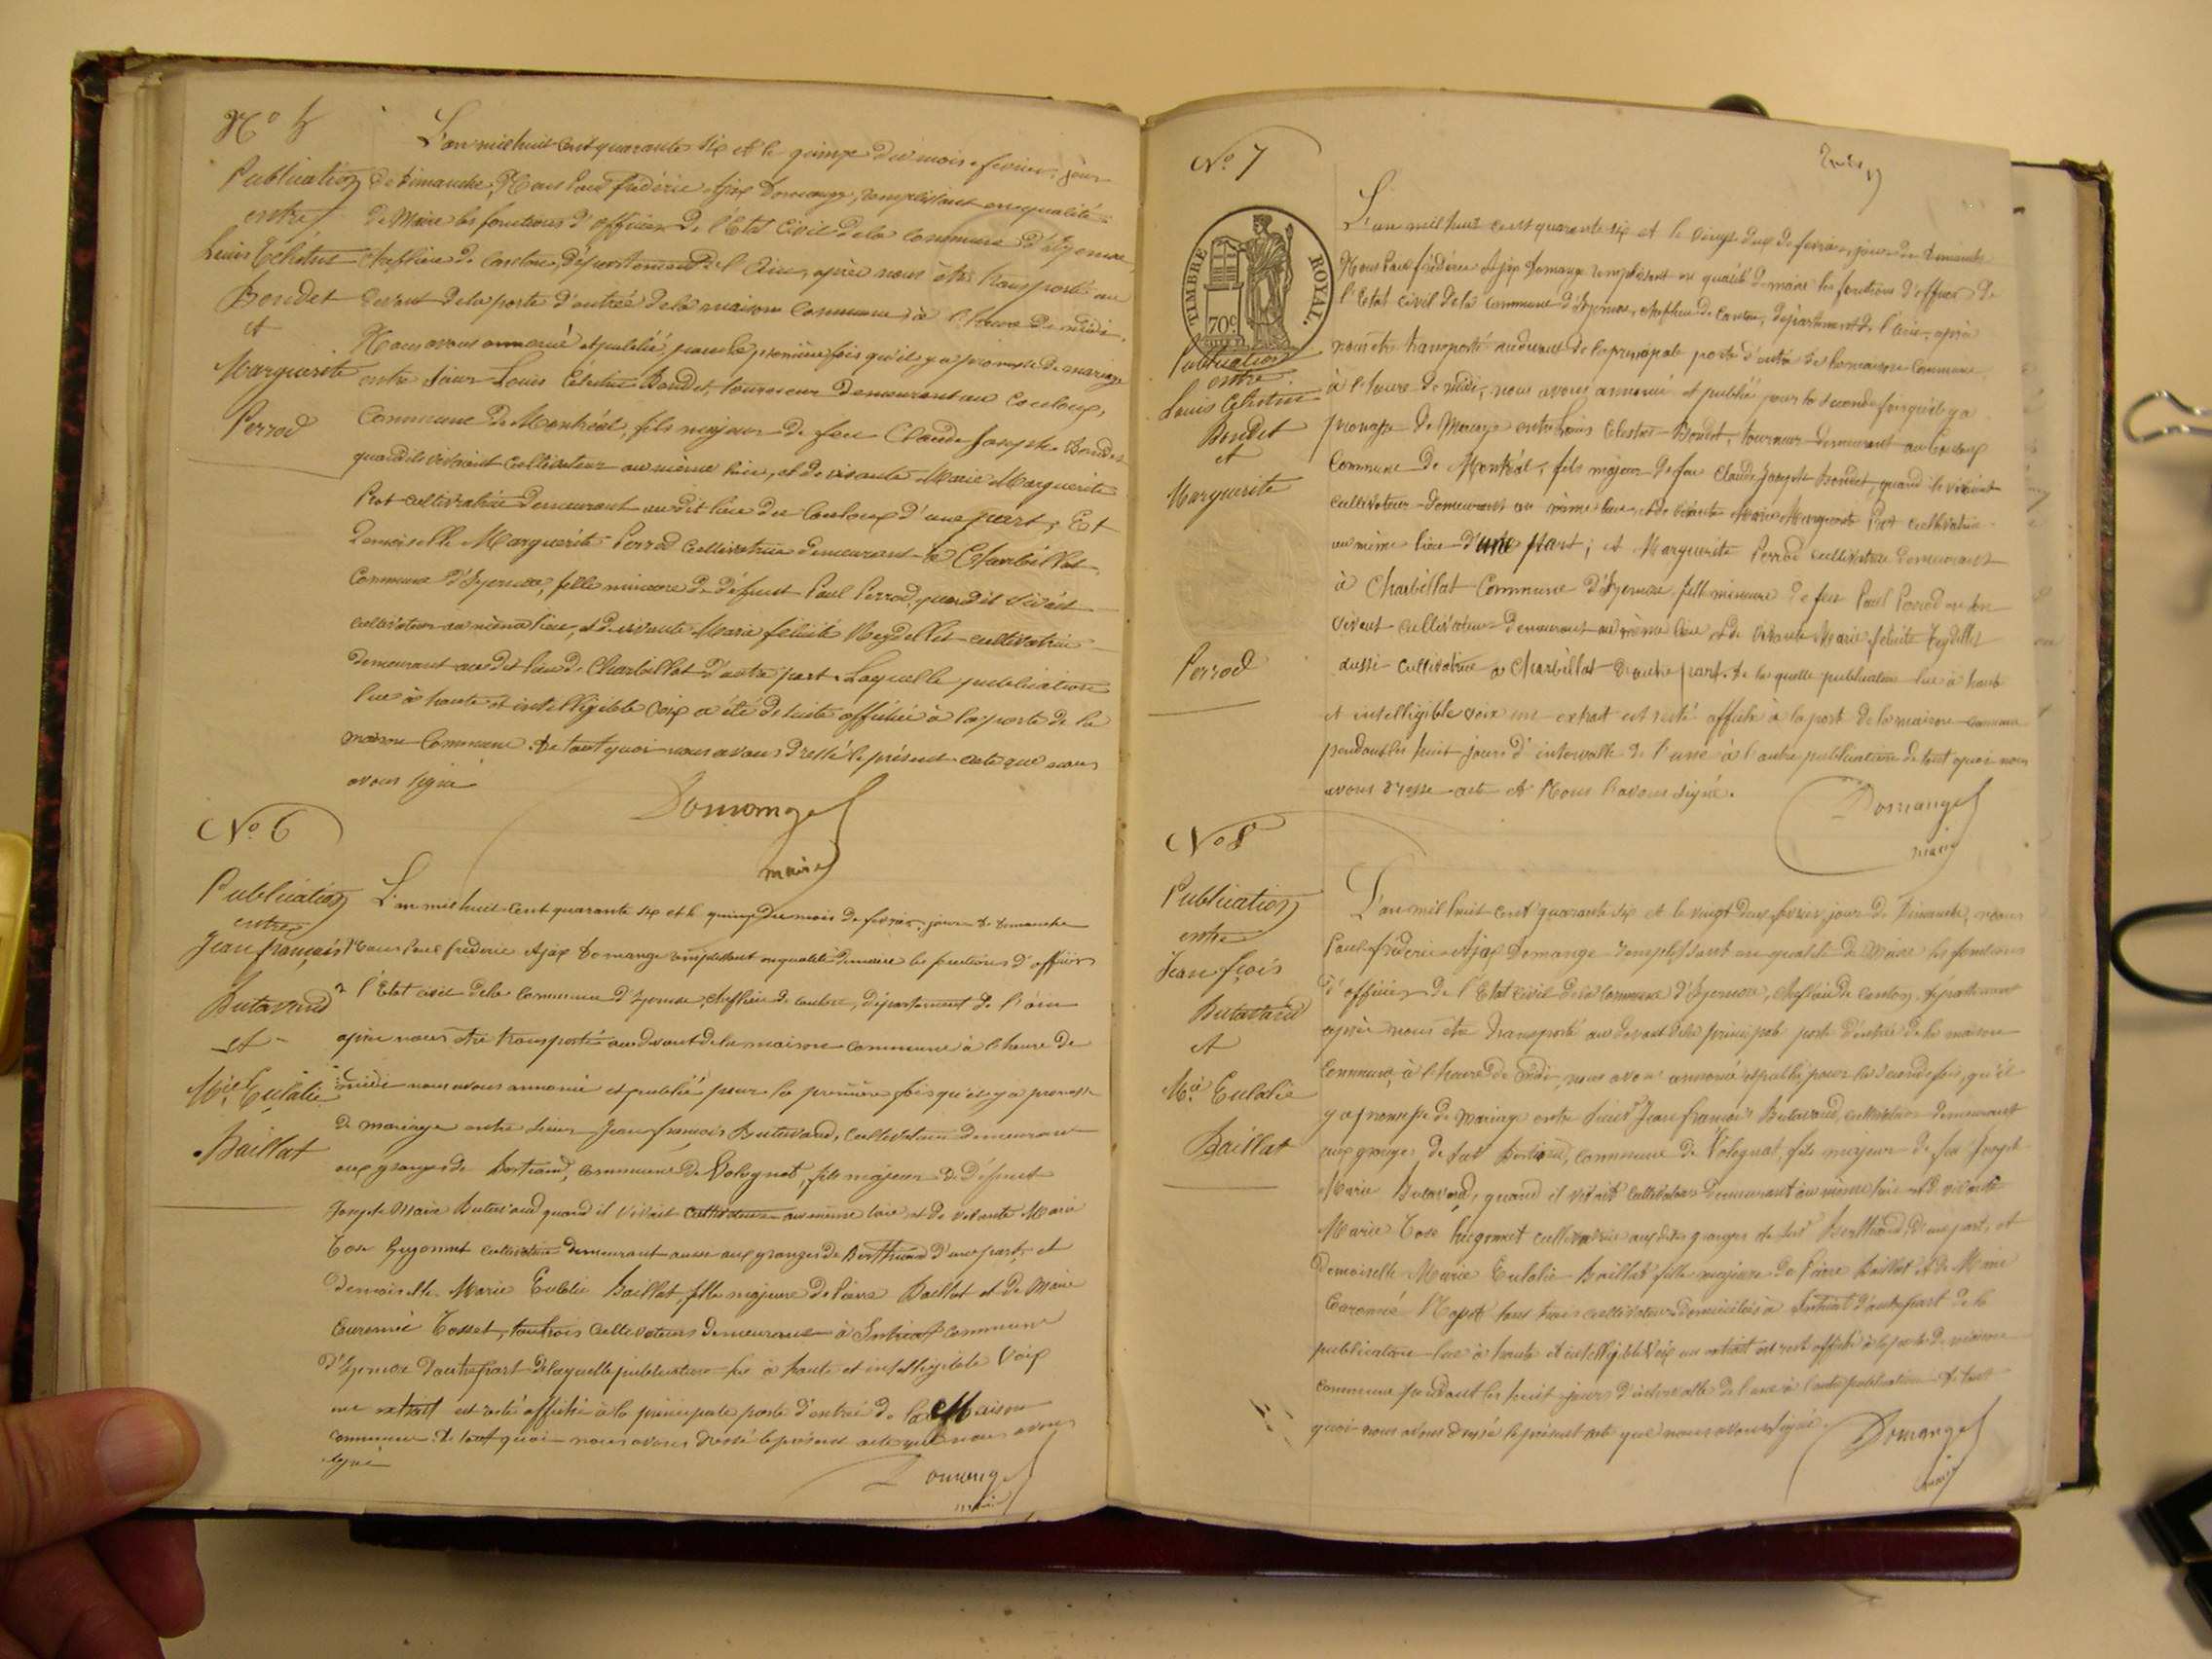 N° 5
Publication
entre
Louis Celestin
Bondet
et
Marguerite
Perrod
L'an mil huit cent quarante six et le quinze du mois fevrier, jour
de dimanche, Nous Paul frédéric Ajax Domange, remplissant en qualité
de Maire les fonctions d'officier de l'Etat Civil de la commune d'Izernore,
cheflieu de Canton, département de l'Ain, après nous être transporté au
devant de la porte d'entrée de la maison Commune, à l'heure de midi,
Nous avons annoncé et publié, pour la première fois qu'il y a promesse de mariage
entre Sieur Louis Celestin Bondet, tourneur demeurant au Couloux,
Commune de Montréal, fils majeur de feu Claude Joseph Bondet
quand il vivait Cultivateur au même lieu, et de vivante Marie Marguerite
Prost cultivatrice demeurant au dit lieu du Couloux d'une part; Et
demoiselle Marguerite Perrod Cultivatrice demeurant à Charbillat
Commune d'Izernore, fille mineure de défunt Paul Perrod, quand il vivait
cultivateur au même lieu, et de vivante Marie félicité Reydellet cultivatrice
demeurant au dit lieu de Charbillat d'autre part. Laquelle publication
lue à haute et intelligible voix a été de suite affichée à la porte de la
maison Commune. De tout quoi nous avons dressé le présent acte que nous
avons signé
Domange
maire
N° 6
Publication
entre
Jean françois
Butavand
et
Mie Eulalie
Baillat
L'an mil huit cent quarante six et le quinze du mois de fevrier, jour de dimanche
Nous Paul frédéric Ajax Domange remplissant en qualité de maire les fonctions d'officier
de l'Etat civil de la Commune d'Izernore, cheflieu de canton, département de l'ain
après nous être transporté au devant de la maison commune à l'heure de
midi nous avons annoncé et publié pour la première fois qu'il y a promesse
de mariage entre Sieur Jean françois Butavand, Cultivateur demeurant
aux granges de Bertiand, commune de Volognat, fils majeur de défunt
Joseph Marie Butavand quand il vivait Cultivateur au même lieu et de vivante Marie
Rose Hugonnet cultivatrice demeurant aussi aux granges de Berthiand d'une part, et
demoiselle Marie Eulalie Baillat, fille majeure de Pierre Baillat et de Marie
tous trois Cultivateurs demeurant à commune
d'Izernore d'autre part. De laquelle publication lue à haute et intelligible voix
un extrait est resté affiché à la principale porte d'entrée de la Maison
commune. De tout quoi nous avons dressé le présent acte que nous avons
signé
Domange
maire
N° 7
TIMBRE ROYAL.
70c
Publication
entre
Louis Celestin
Bondet
et
Marguerite
Perrod
L'an mil huit cent quarante six et le vingt deux de fevrier, jour de dimanche
Nous Paul frédéric Ajax Domange remplissant en qualité de maire les fonctions d'officier de
l'Etat civil de la Commune d'Izernore, cheflieu de Canton, département de l'ain, après
nous être transporté au devant de la principale porte d'entrée de la maison Commune
à l'heure de midi, nous avons annoncé et publié pour la seconde fois qu'il y a
promesse de Mariage entre Louis Celestin Bondet, tourneur demeurant au Couloux
Commune de Montréal, fils majeur de feu Claude Joseph Bondet, quand il vivait
cultivateur demeurant au même lieu, et de vivante Marie Marguerite Prost cultivatrice
au même lieu d'une part; et Marguerite Perrod cultivatrice demeurant
à Charbillat Commune d'Izernore fille mineure de feu Paul Perrod en son
vivant cultivateur demeurant au même lieu et de vivante Marie félicité Reydellet
aussi cultivatrice à Charbillat d'autre part. De laquelle publication lue à haute
et intelligible voix un extrait est resté affiché à la porte de la maison commune
pendant les huit jours d'intervalle de l'une à l'autre publication de tout quoi nous
avons dressé acte et Nous l'avons signé.
Domange
maire
N° 8
Publication
entre
Jean fçois
Butavand
et
Mie Eulalie
Baillat
L'an mil huit cent quarante six et le vingt deux fevrier, jour de dimanche, nous
Paul frédéric Ajax Domange remplissant en qualité de Maire les fonctions
d'officier de l'Etat Civil de la Commune d'Izernore, Cheflieu de Canton, département
après nous être transporté au devant de la principale porte d'entrée de la maison
Commune, à l'heure de midi, nous avons annoncé et publié, pour la seconde fois, qu'il
y a promesse de mariage entre sieur Jean françois Butavand, cultivateur demeurant
aux granges de sur Bertiand, commune de Volognat, fils majeur de feu Joseph
Marie Butavand, quand il vivait Cultivateur demeurant au même lieu et de vivante
Marie Rose Hugonnet cultivatrice aux dites granges de sur Berthiand, d'une part, et
Demoiselle Marie Eulalie Baillat fille majeure de Pierre Baillat et de Marie
tous trois cultivateurs domiciliés à d'autre part de la
publication lue à haute et intelligible voix un extrait est resté affiché à la porte de maison
commune pendant les huit jours d'intervalle de l'une à l'autre publication. De tout
quoi nous avons dressé le présent acte que nous avons signé.
Domange
maire